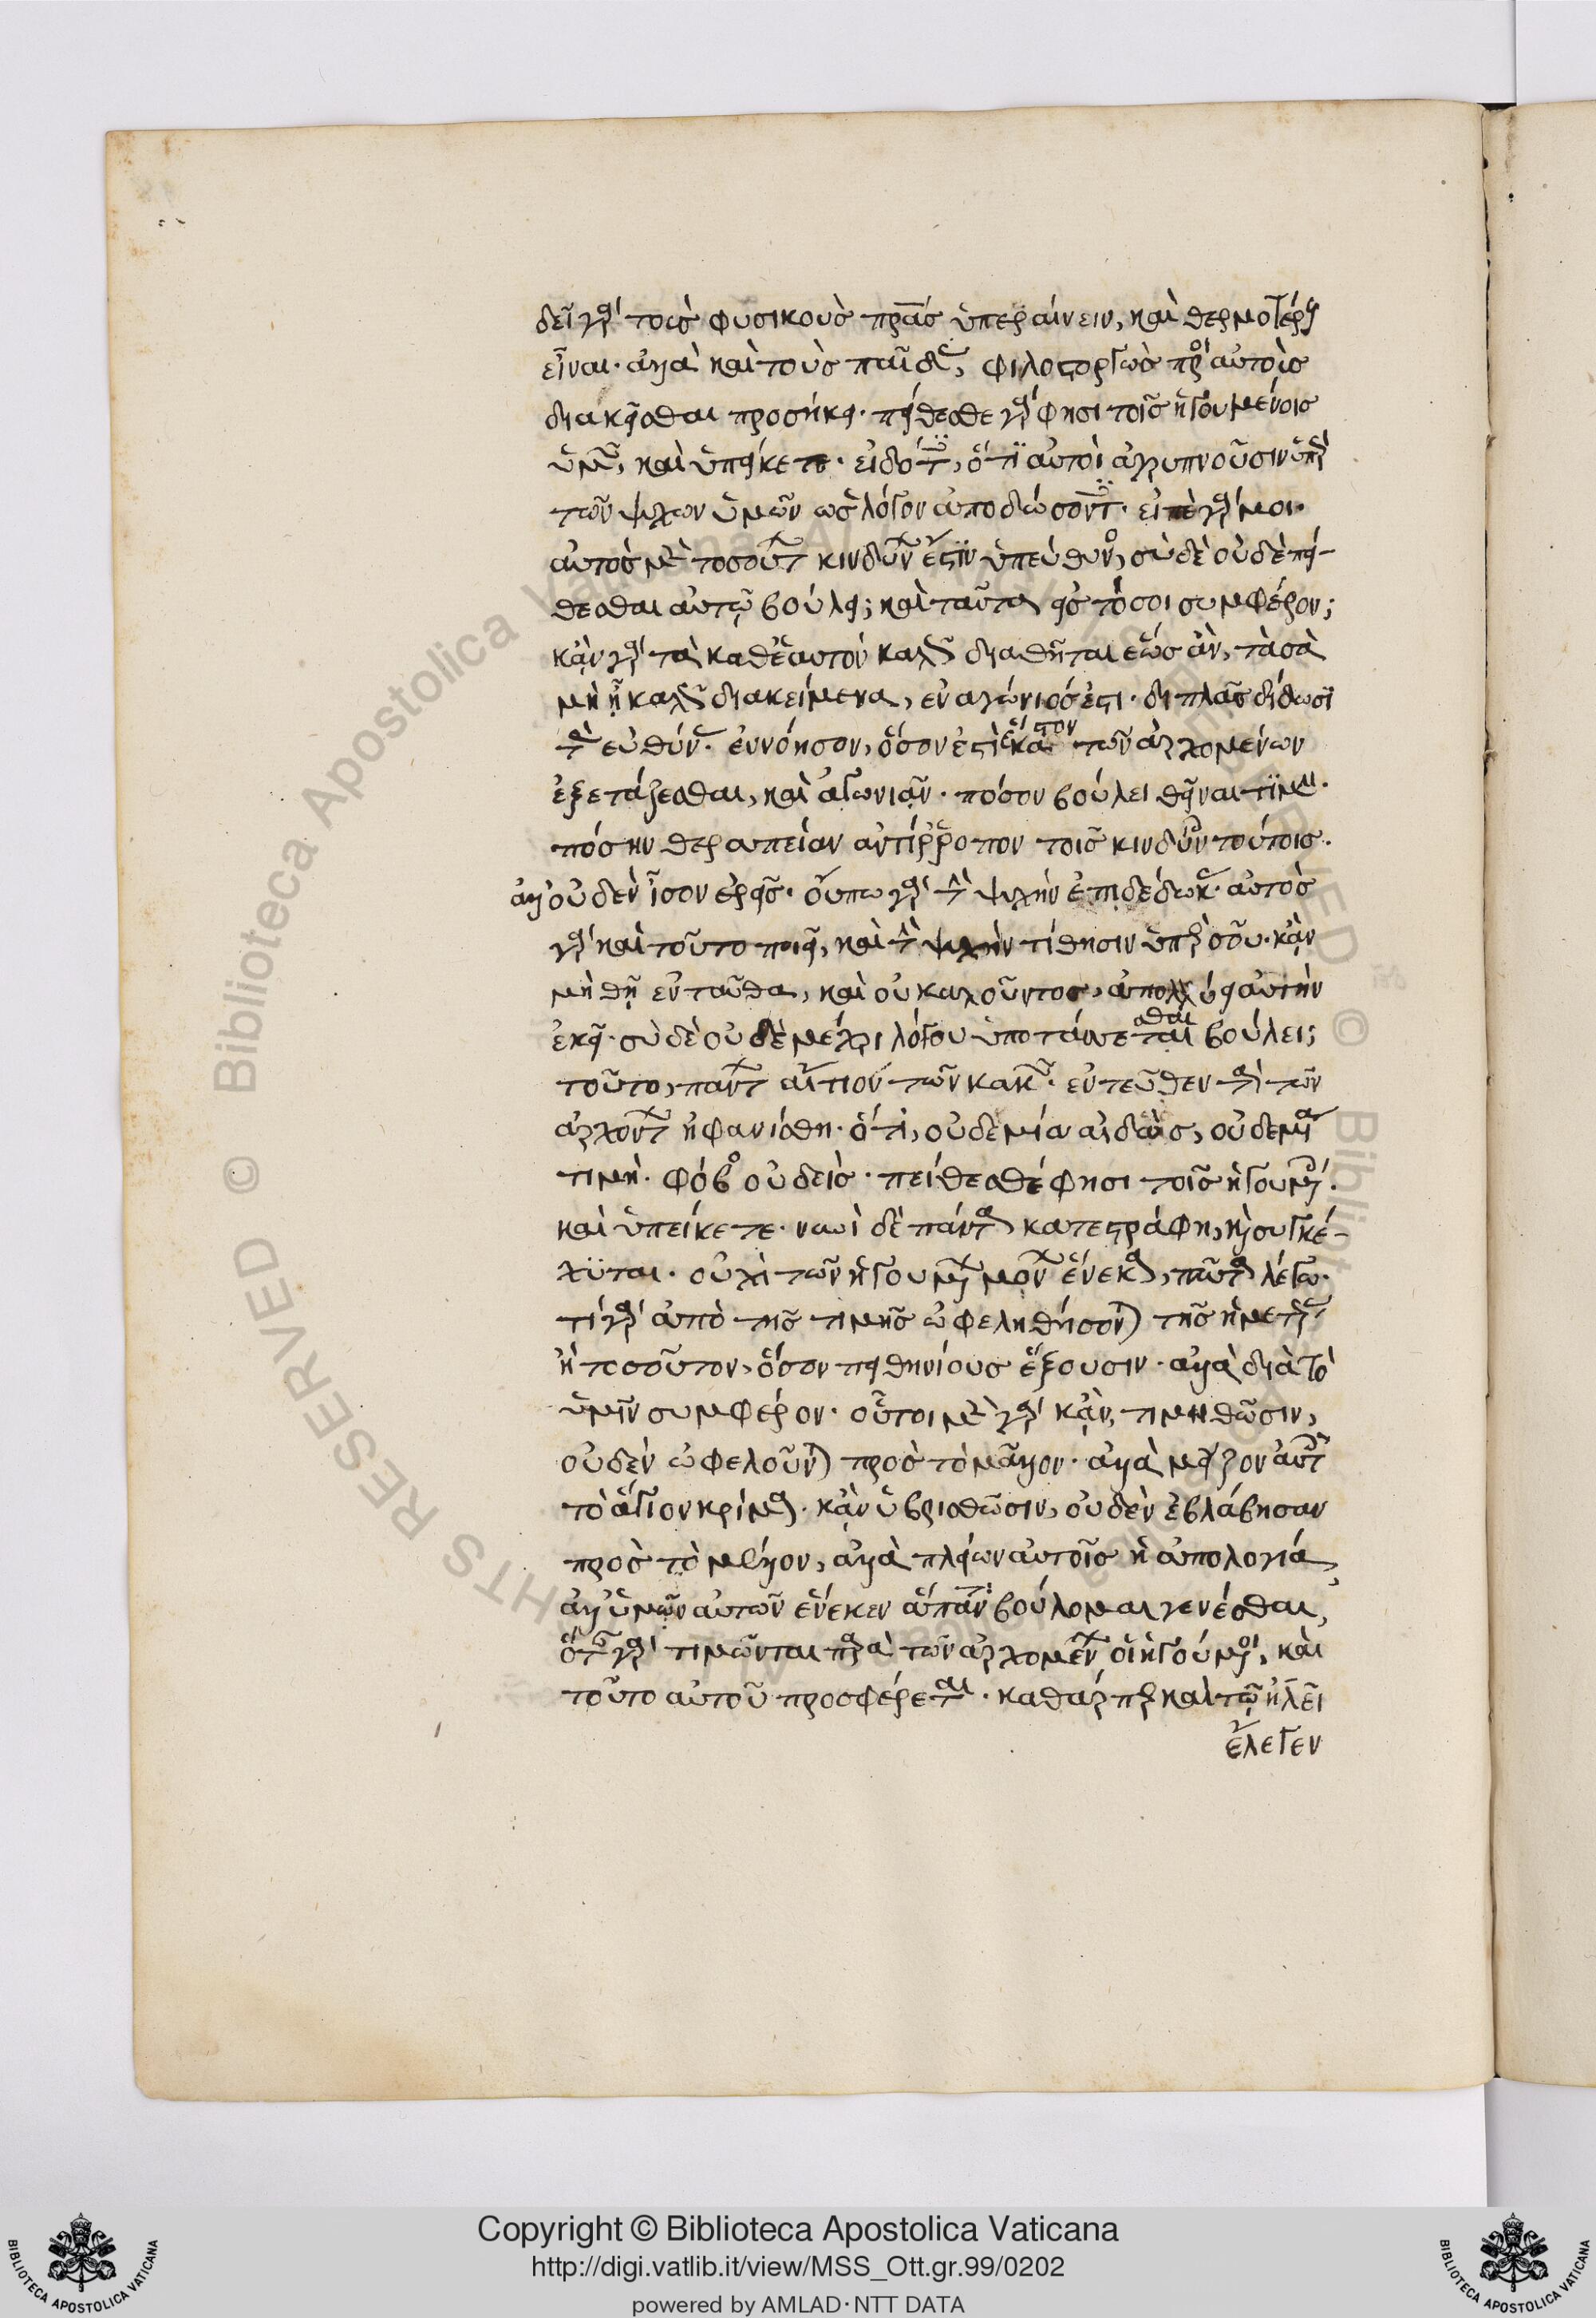 δεῖ γὰρ τοὺς φυσικοὺς πρ̅ας ὑπεραίνειν, καὶ θερμοτέρους
εἶναι· ἀλλὰ καὶ τοὺς παῖδας, φιλοστόργως πρὸς αὐτοὺς
διακεῖσθαι προσήκει· πείθεσθε γὰρ φησὶ τοῖς ἡγουμένοις
ὑμῶν, καὶ ὑπείκετε· εἰδότες, ὅτι αὐτοὶ ἀγρυπνοῦσιν ὑπὲρ
τῶν ψυχῶν ὑμῶν ὡς λόγον ἀποδώσοντες· εἰπὲ γάρ μοι·
αὐτὸς μὲν τοσούτων κινδύνων ἐστὶν ὑπεύθυνος, σὺ δὲ οὐδὲ πεί-
θεσθαι αὐτῷ βούλει; καὶ ταῦτα εἰς τό σοι συμφέρον;
κἂν γὰρ τὰ καθ' ἑαυτὸν καλῶς διαθῆται ἕως ἂν, τὰ σὰ
μὴ ᾖ καλῶς διακείμενα, ἐναγώνιός ἐστι· διπλᾶς δίδωσι
τὰς εὐθύνας· ἐννόησον, ὅσον ἐστὶ ἕκαστον τῶν ἀρχομένων
ἐξετάζεσθαι, καὶ ἀγωνιᾶν· πόσον βούλει θεῖναι τιμὴν·
πόσην θεραπείαν ἀντίρροπον τοῖς κινδύνοις τούτοις·
ἀλλ' οὐδὲν ἴσον ἐρεῖς· οὔπω γὰρ τὴν ψυχὴν ἐπιδέδωκας· αὐτὸς
γὰρ καὶ τοῦτο ποιεῖ, καὶ τὴν ψυχὴν τίθησιν ὑπὲρ σοῦ· κἂν
μὴ θῇ ἐνταῦθα, καὶ οὐ καλοῦντος, ἀπολλύει αὐτὴν
ἐκεῖ· σὺ δὲ οὐδὲ μέχρι λόγου ὑποτάττεσθαι βούλει;
τοῦτο, πάντων αἴτιον τῶν κακῶν· ἐντεῦθεν τὰ τῶν
ἀρχόντων ἠφανίσθη· ὅτι, οὐδεμία αἰδὼς, οὐδεμία
τιμὴ· φόβος οὐδεὶς· πείθεσθέ φησι τοῖς ἡγουμένοις·
καὶ ὑπείκετε· νυνὶ δὲ πάντα κατεστράφη, καὶ συγκέ-
χυται· οὐχὶ τῶν ἡγουμένων μόνων ἕνεκα, ταῦτα λέγω·
τί γὰρ ἀπὸ τῆς τιμῆς ὠφεληθήσονται τῆς ἡμετέρας
ἢ τοσοῦτον, ὅσον πειθηνίους ἕξουσιν· ἀλλὰ διὰ τὸ
ὑμῖν συμφέρον· οὗτοι μὲν γὰρ κἂν, τιμηθῶσιν,
οὐδὲν ὠφελοῦνται πρὸς τὸ μᾶλλον· ἀλλὰ μεῖζον αὐτοῖς
τὸ αἴτιον κρίμα· κἂν ὑβρισθῶσιν, οὐδὲν ἐβλάβησαν
πρὸς τὸ μέλλον, ἀλλὰ πλείων αὐτοῖς ἡ ἀπολογία,
ἀλλ' ὑμῶν αὐτῶν ἕνεκεν ἅπαντα βούλομαι γενέσθαι,
ὅταν γὰρ τιμῶνται παρὰ τῶν ἀρχομένων οἱ ἡγούμενοι, καὶ
τοῦτο αὐτοῦ προσφέρεται· καθάπερ καὶ τῷ ἠλεὶ
ἔλεγεν
Copyright © Biblioteca Apostolica Vaticana
http://digi.vatlib.it/view/MSS_Ott.gr.99/0202
powered by AMLAD·NTT DATA